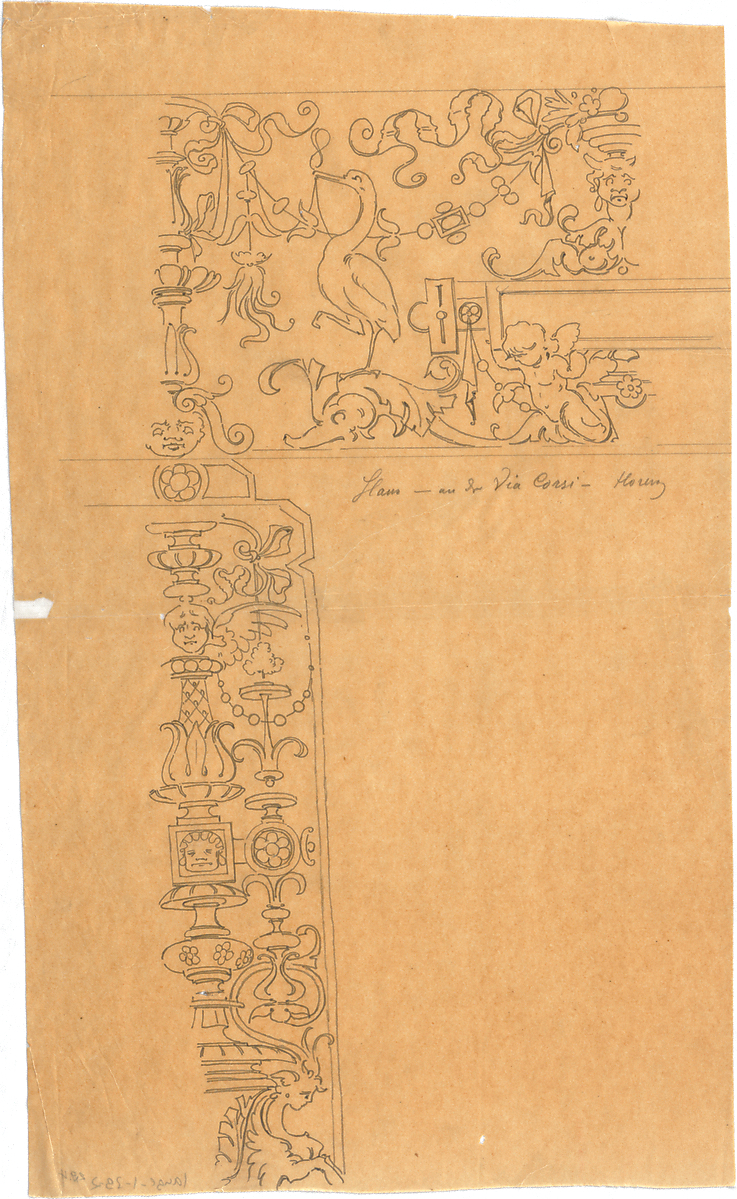 Haus — an der Via Corsi — Florenz
lange-1-29-2